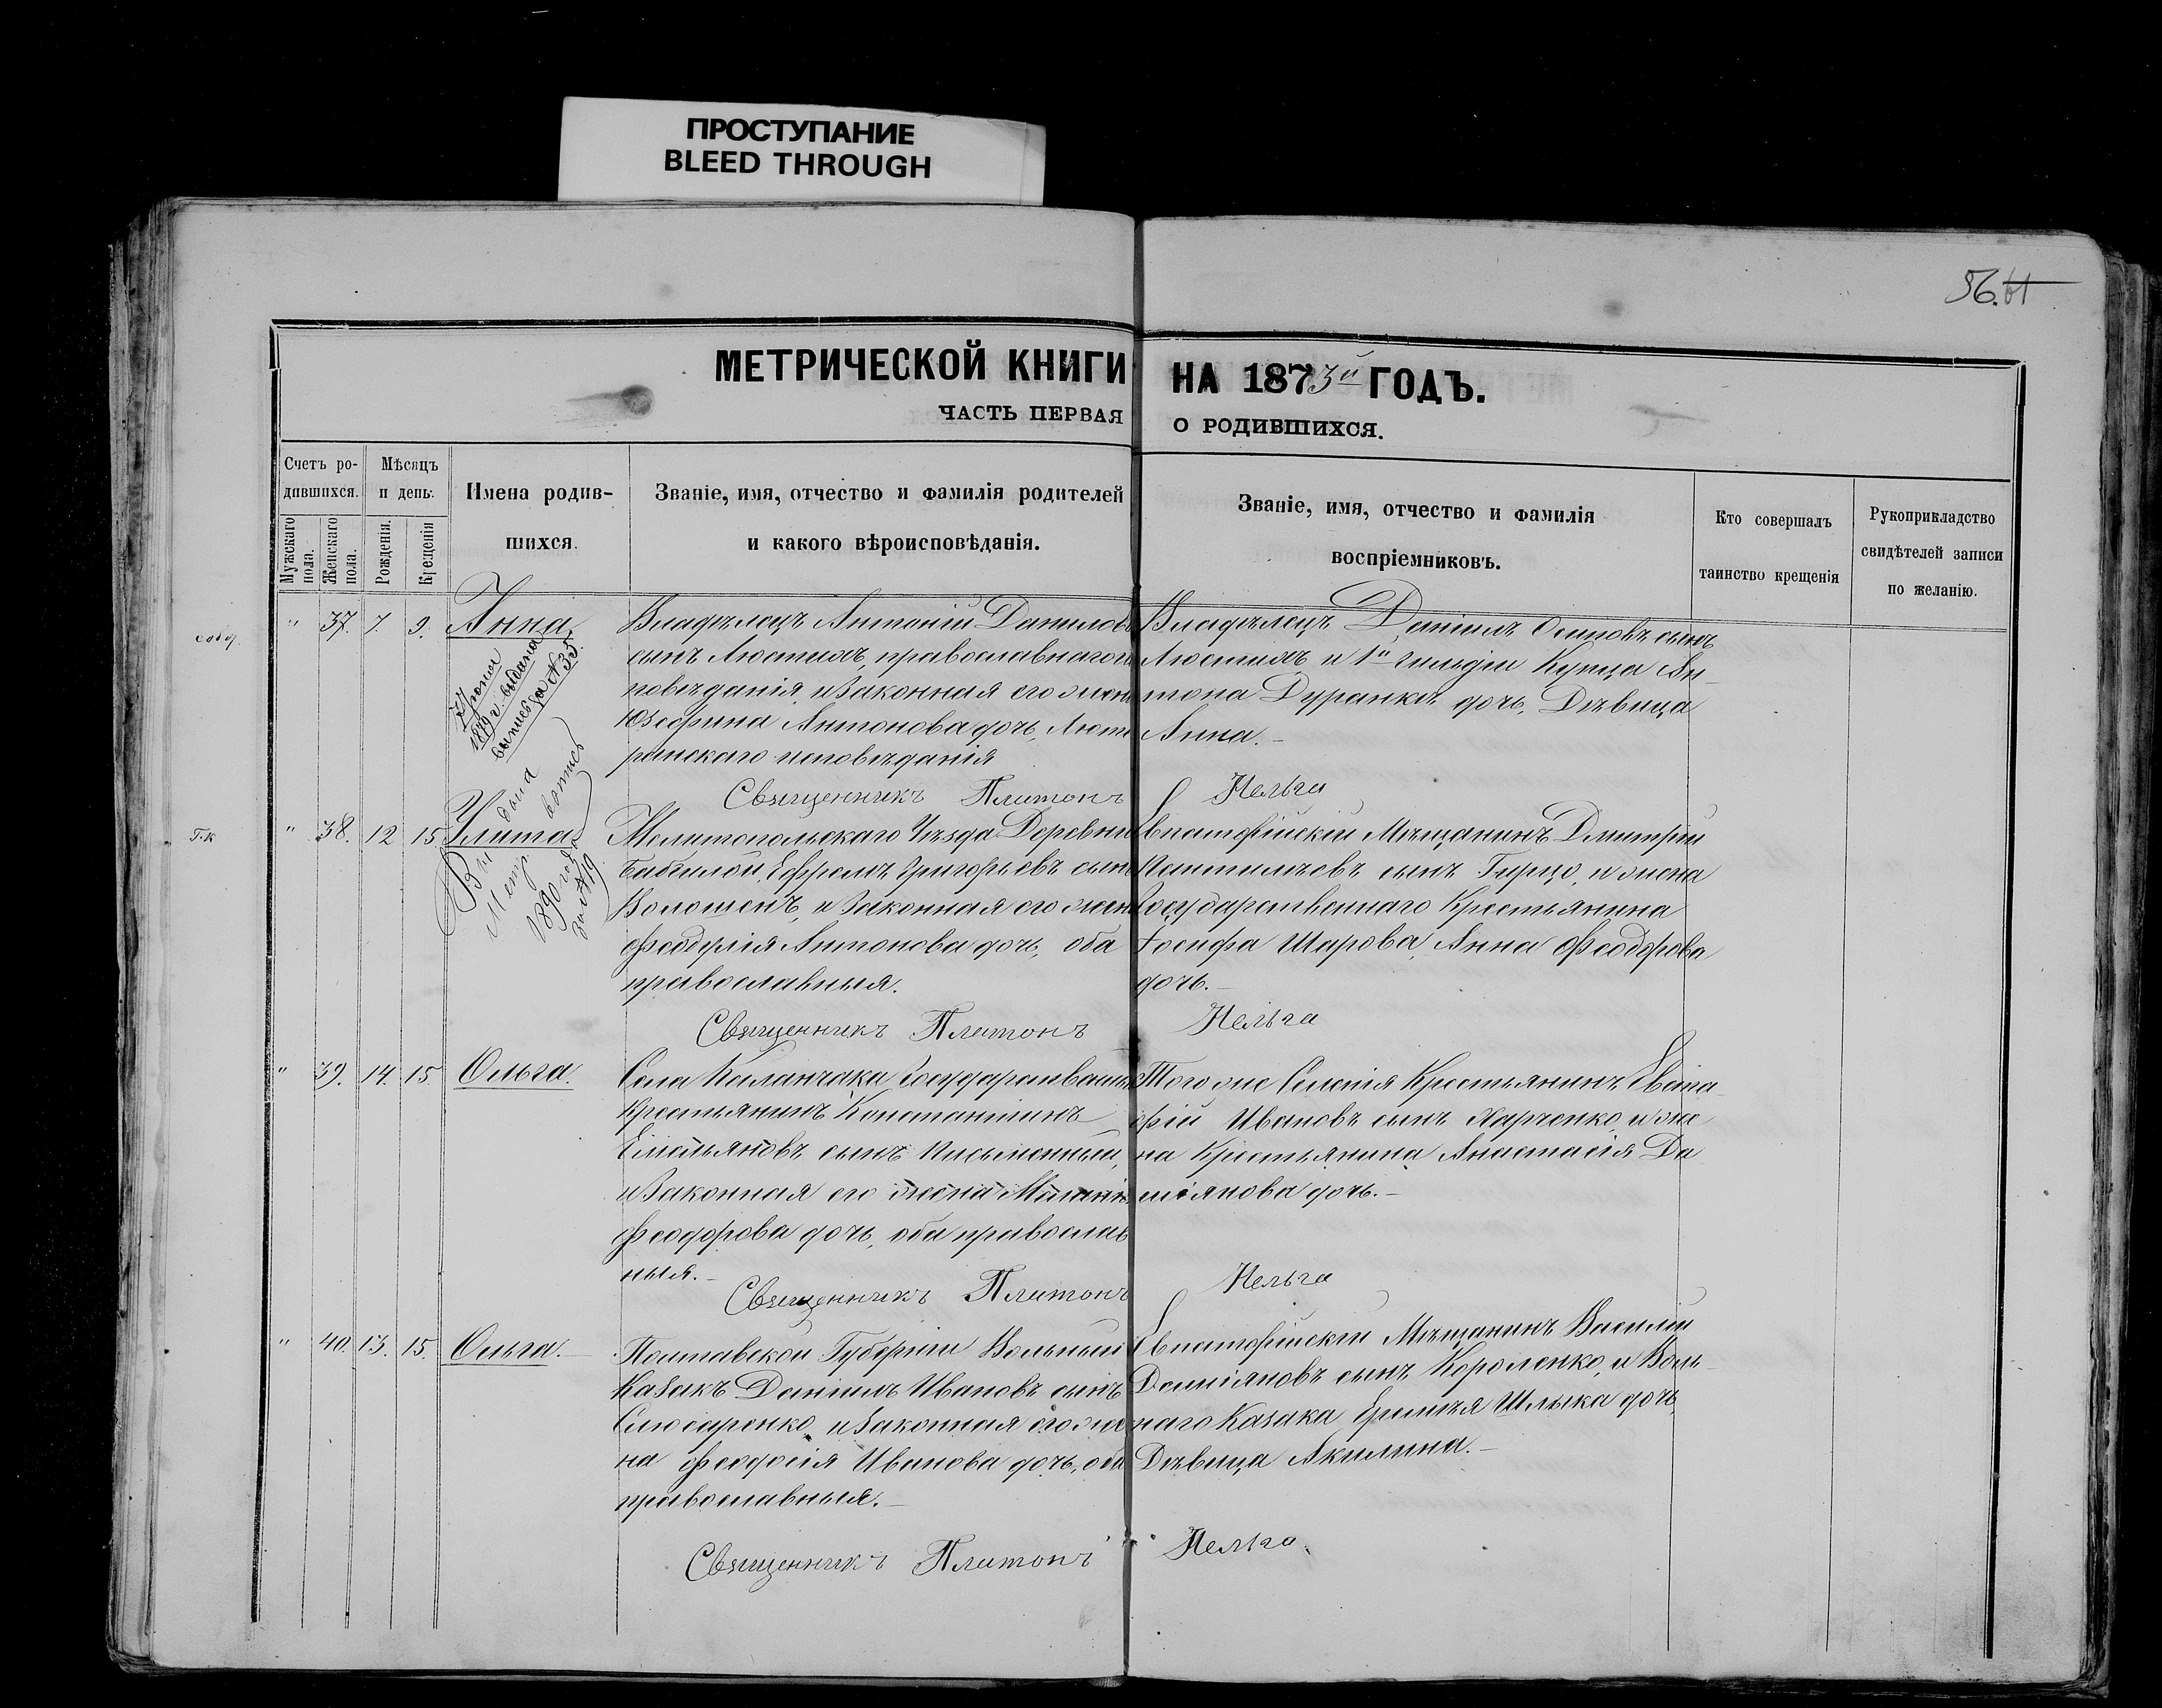 ПРОСТУПАНИЕ
BLEED THROUGH
56. 61
МЕТРИЧЕСКОЙ КНИГИ НА 1873й ГОДЪ.
ЧАСТЬ ПЕРВАЯ О РОДИВШИХСЯ.
Счетъ ро-
дившихся.
Мужскаго пола.
Женскаго пола.
Мѣсяцъ
и день.
Рожденія.
Крещенія
Имена родив-
шихся.
Званіе, имя, отчество и фамилія родителей
и какого вѣроисповѣданія.
Званіе, имя, отчество и фамилія
воспріемниковъ.
Кто совершалъ
таинство крещенія
Рукоприкладство
свидѣтелей записи
по желанію.
" 37. 7. 9. Анна
1879 г. выдана
выпись за № 35.
Владѣлецъ Антоній Данилов
сынъ Люстихъ, православнаго
повѣданія, и законная его жен
Юзефина Антонова дочь, Люте
ранскаго исповѣданія
Владѣлецъ Даніилъ Осиповъ сынъ
Люстихъ и 1й гильдіи Купца Ан-
тона Дуранки дочь, Дѣвица
Анна.-
Священникъ Платонъ Нельга
Г.к
" 38. 12 15 Улита
Выдана
Метр. выпись
1890 года
за № 19
Мелитопольскаго Уѣзда Деревни
Ефремъ Григорьевъ сынъ
Волошенъ, и законная его жен
Антонова дочь, оба
православныя.
Евпаторійскій Мѣщанинъ Дмитрій
сынъ Гирцо, и жена
Государственнаго Крестьянина
Іосифа Шарова, Анна Феодорова
дочь.-
Священникъ Платонъ Нельга
" 39. 14. 15. Ольга.
Села Каланчака Государственный
Крестьянинъ Константинъ
Емельяновъ сынъ Письменный,
и законная его жена
Феодорова дочь, оба православ
ныя.-
Того же Селенія Крестьянинъ Евста
фій Ивановъ сынъ Харченко, и же
на Крестьянина Анастасія Да
міянова дочь.-
Священникъ Платонъ Нельга
" 40. 13. 15. Ольга.-
Полтавской Губерніи Вольный
Казакъ Даніилъ Ивановъ сынъ
Слюсаренко, и законная его же
на Феодосія Иванова дочь, оба
православныя.-
Евпаторійскій Мѣщанинъ Василій
Доміяновъ сынъ Короленко, и Воль-
наго Казака Ермилія Шлыка дочь,
Дѣвица Акилина.-
Священникъ Платонъ Нельга